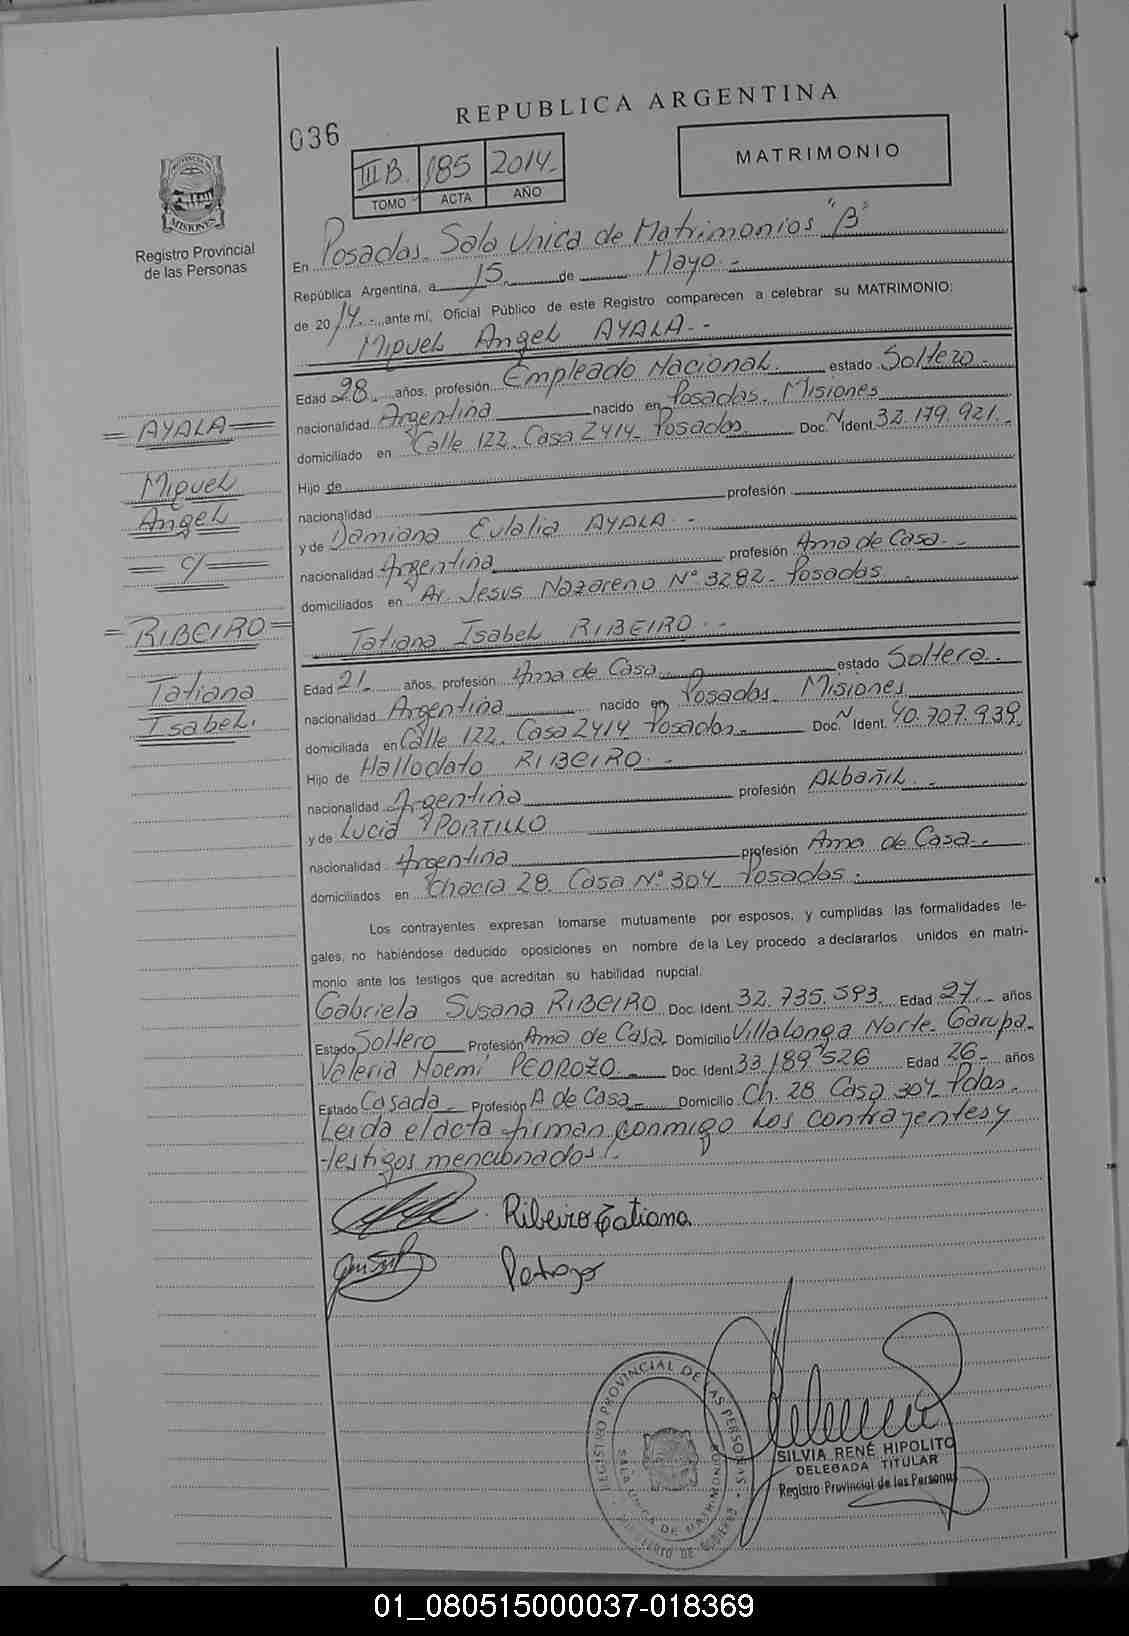 REPUBLICA ARGENTINA
036
III B. 185 2014.-
TOMO ACTA AÑO
MATRIMONIO
PROVINCIA DE MISIONES
Registro Provincial
de las Personas
En Posadas. Sala Unica de Matrimonios "B"
República Argentina, a 15 de Mayo.-
de 2014.- ante mí, Oficial Público de este Registro comparecen a celebrar su MATRIMONIO:
Miguel Angel AYALA.-
Edad 28 años, profesión Empleado Nacional. estado Soltero.-
nacionalidad Argentina nacido en Posadas. Misiones
domiciliado en Calle 122. Casa 2414. Posadas. Doc. N Ident. 32.179.921.-
Hijo de
nacionalidad profesión
y de Damiana Eulalia AYALA.-
nacionalidad Argentina profesión Ama de Casa.-
domiciliados en Av. Jesus Nazareno Nº 3282- Posadas.
Tatiana Isabel RIBEIRO.-
Edad 21 años, profesión Ama de Casa estado Soltera.-
nacionalidad Argentina nacido en Posadas. Misiones
domiciliada en Calle 122. Casa 2414 Posadas.- Doc. N Ident. 40.707.939
Hijo de Hallodato RIBEIRO.-
nacionalidad Argentina profesión Albañil.-
y de Lucia PORTILLO
nacionalidad Argentina profesión Ama de Casa.-
domiciliados en Chacra 28. Casa Nº 304- Posadas.
Los contrayentes expresan tomarse mutuamente por esposos, y cumplidas las formalidades le-
gales, no habiéndose deducido oposiciones en nombre de la Ley procedo a declararlos unidos en matri-
monio ante los testigos que acreditan su habilidad nupcial.
Gabriela Susana RIBEIRO Doc. Ident. 32.735.593. Edad 27.- años
Estado Soltero Profesión Ama de Casa Domicilio Villalonga Norte. Garupa.
Valeria Noemí PEDROZO.- Doc. Ident. 33.189.526 Edad 26- años
Estado Casada Profesión A de Casa- Domicilio Ch. 28 Casa 304 Pdas.
Leida el acta firman conmigo los contrayentes y
testigos mencionados.
= AYALA =
Miguel
Angel
= c/ =
= RIBEIRO =
Tatiana
Isabel.
Ribeiro Tatiana
Pedrozo
REGISTRO PROVINCIAL DE LAS PERSONAS
SALA UNICA DE MATRIMONIOS
MINISTERIO DE GOBIERNO
SILVIA RENÉ HIPOLITO
DELEGADA TITULAR
Registro Provincial de las Personas
01_080515000037-018369